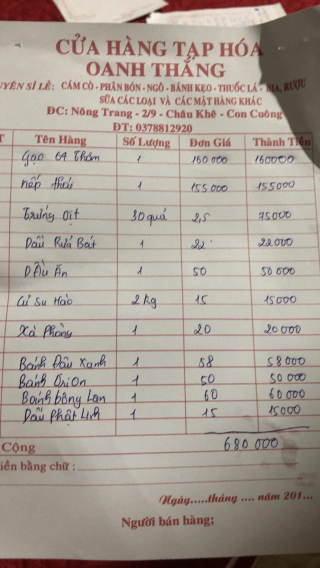 CỬA HÀNG TẠP HÓA
OANH THẮNG
UYÊN SỈ LẺ: CÁM CÒ - PHÂN BÓN - NGÔ - BÁNH KẸO - THUỐC LÁ - BIA, RƯỢU
SỮA CÁC LOẠI VÀ CÁC MẶT HÀNG KHÁC
ĐC: Nông Trang - 2/9 - Châu Khê - Con Cuông
ĐT: 0378812920
T Tên Hàng Số Lượng Đơn Giá Thành Tiền
Gạo GA Thơm 1 160 000 160000
nếp thái 1 155 000 155000
Trứng Vịt 30 quả 2,5 75000
Dầu Rửa Bát 1 22 22.000
Dầu Ăn 1 50 50 000
Củ Su Hào 2 kg 15 15000
Xà Phòng 1 20 20 000
Bánh Đậu Xanh 1 58 58 000
Bánh Orion 1 50 50 000
Bánh bông Lan 1 60 60 000
Dầu Phật Linh 1 15 15000
Cộng 680 000
iền bằng chữ :
Ngày.....tháng .... năm 201...
Người bán hàng;